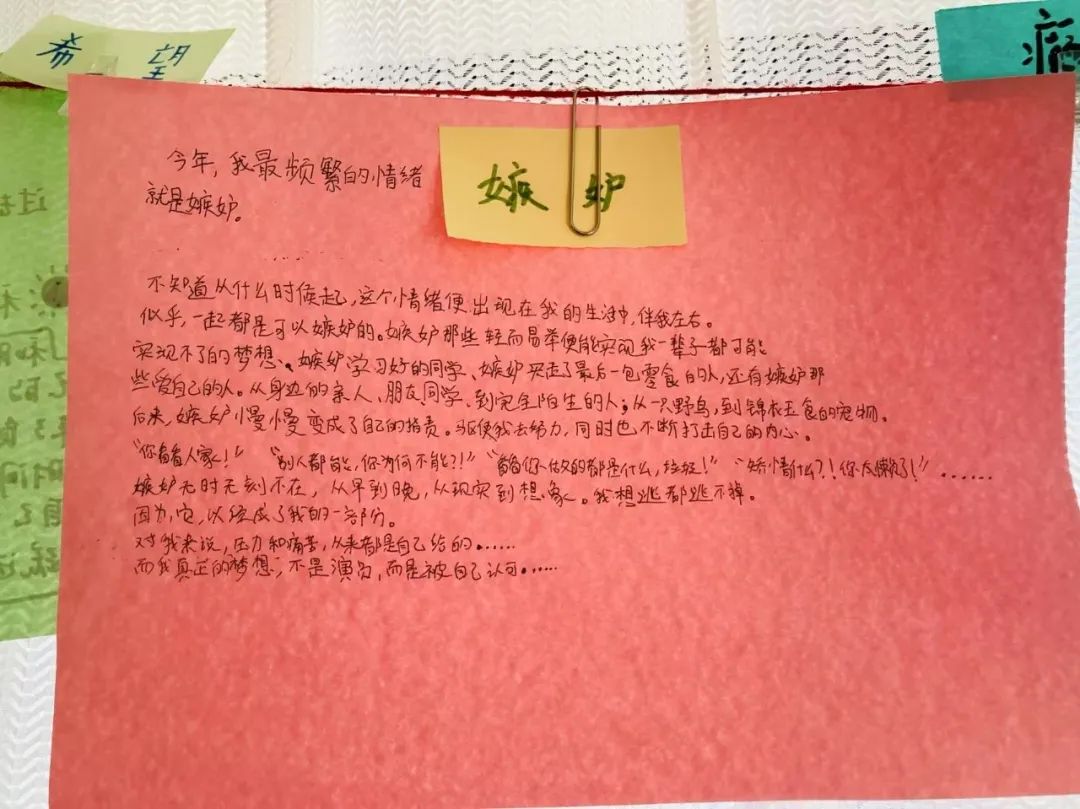 希望
嫉妒
今年，我最频繁的情绪
就是嫉妒。
不知道从什么时候起，这个情绪便出现在我的生活中，伴我左右。
似乎，一起都是可以嫉妒的。嫉妒那些轻而易举便能实现我一辈子都可能
实现不了的梦想、嫉妒学习好的同学、嫉妒买走了最后一包零食的人，还有嫉妒那
些爱自己的人。从身边的亲人、朋友同学、到完全陌生的人；从一只野鸟，到锦衣玉食的宠物。
后来，嫉妒慢慢变成了自己的指责。驱使我去努力，同时也不断打击自己的内心。
“你看看人家！” “别人都能，你为何不能？！” “看看你做的都是什么，垃圾！” “矫情什么？！你太懒了！”……
嫉妒无时无刻不在，从早到晚，从现实到想象。我想逃都逃不掉。
因为，它，以经成了我的一部分。
对我来说，压力和痛苦，从来都是自己给的……
而我真正的梦想，不是演员，而是被自己认可……